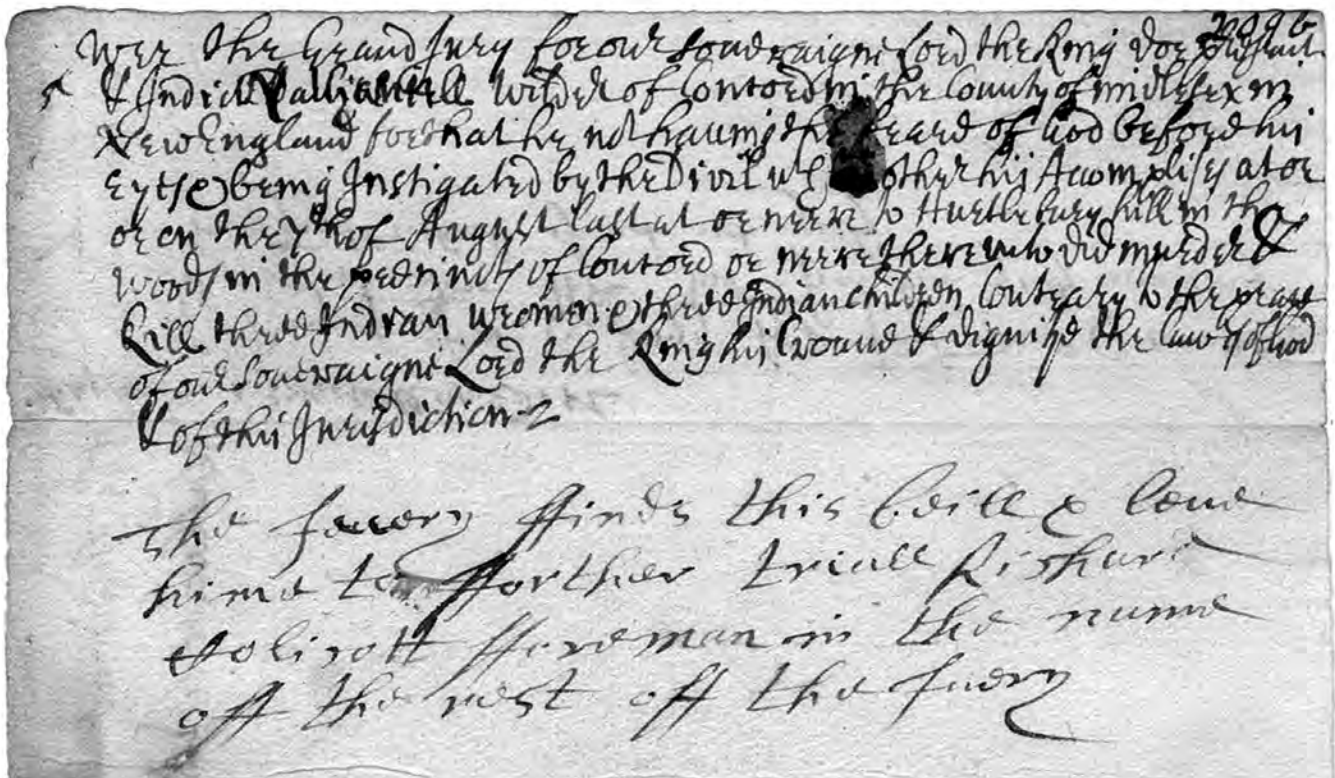 Wee the Grand Jury for our Soveraigne Lord the King doe present
& Indict Wilder of Concord in the County of midlesex in
New England for that he not haveing the feare of God before his
Eyes & being Instigated by the Divil wth other his Accomplises at or
or on the 7th of August last at or neere to Hurtlebury hill in the
woods in the precincts of Concord or neere thereunto did murder &
kill three Indian weomen & three Indian Children Contrary to the peace
of our Soveraigne Lord the King his Croune & dignity the laws of God
& of this Jurisdiction
the Juery ffinds this beill & leve
hime to fforther triall Richard
Colicott fforeman in the name
off the rest off the Juery